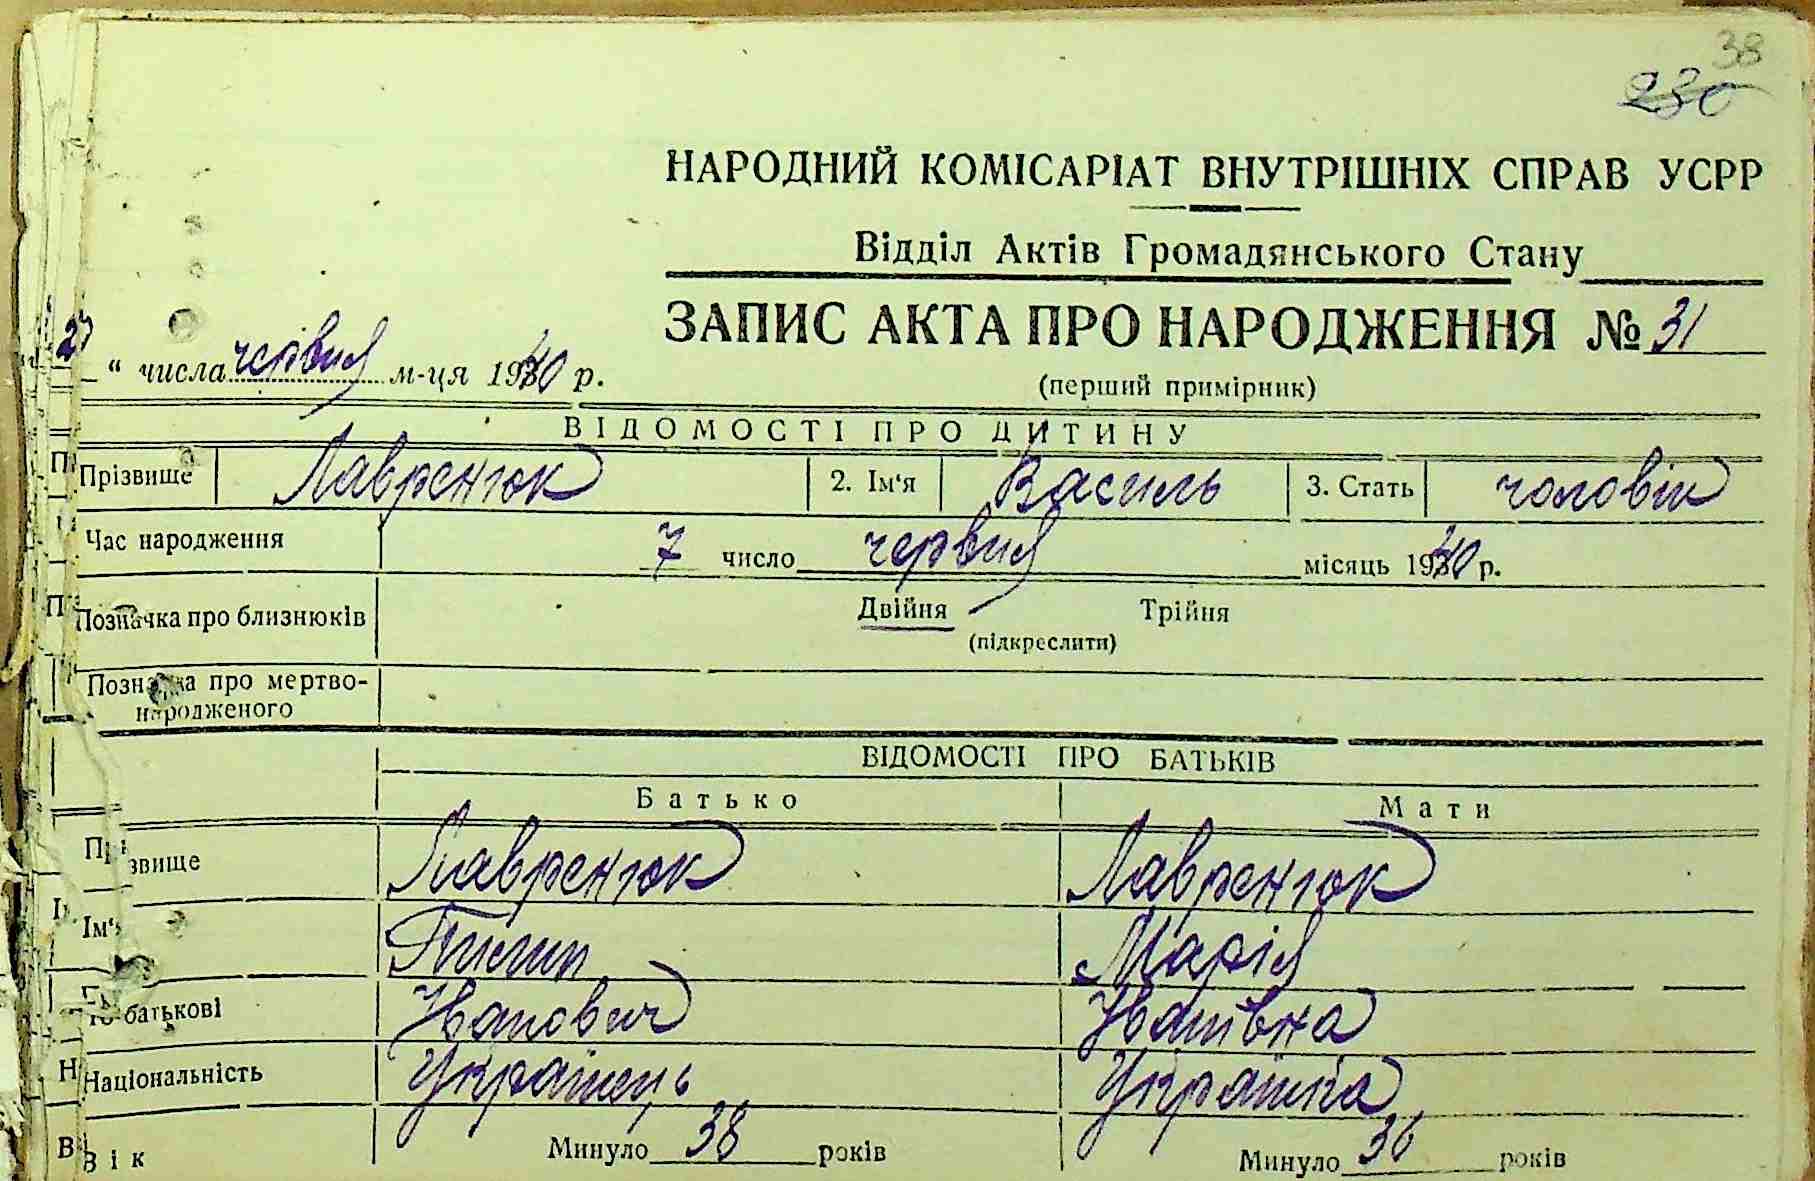 38
230
НАРОДНИЙ КОМІСАРІАТ ВНУТРІШНІХ СПРАВ УСРР
Відділ Актів Громадянського Стану
ЗАПИС АКТА ПРО НАРОДЖЕННЯ № 31
27 “ числа червня м-ця 1940 р.
(перший примірник)
ВІДОМОСТІ ПРО ДИТИНУ
Прізвище Лавренюк 2. Ім'я Василь 3. Стать чоловік
Час народження 7 число червня місяць 1940 р.
Позначка про близнюків Двійня Трійня
(підкреслити)
Позначка про мертво-
народженого
ВІДОМОСТІ ПРО БАТЬКІВ
Батько Мати
Прізвище Лавренюк Лавренюк
Ім'я Пилип Марія
По-батькові Іванович Іванівна
Національність Українець Українка
Вік Минуло 38 років Минуло 36 років